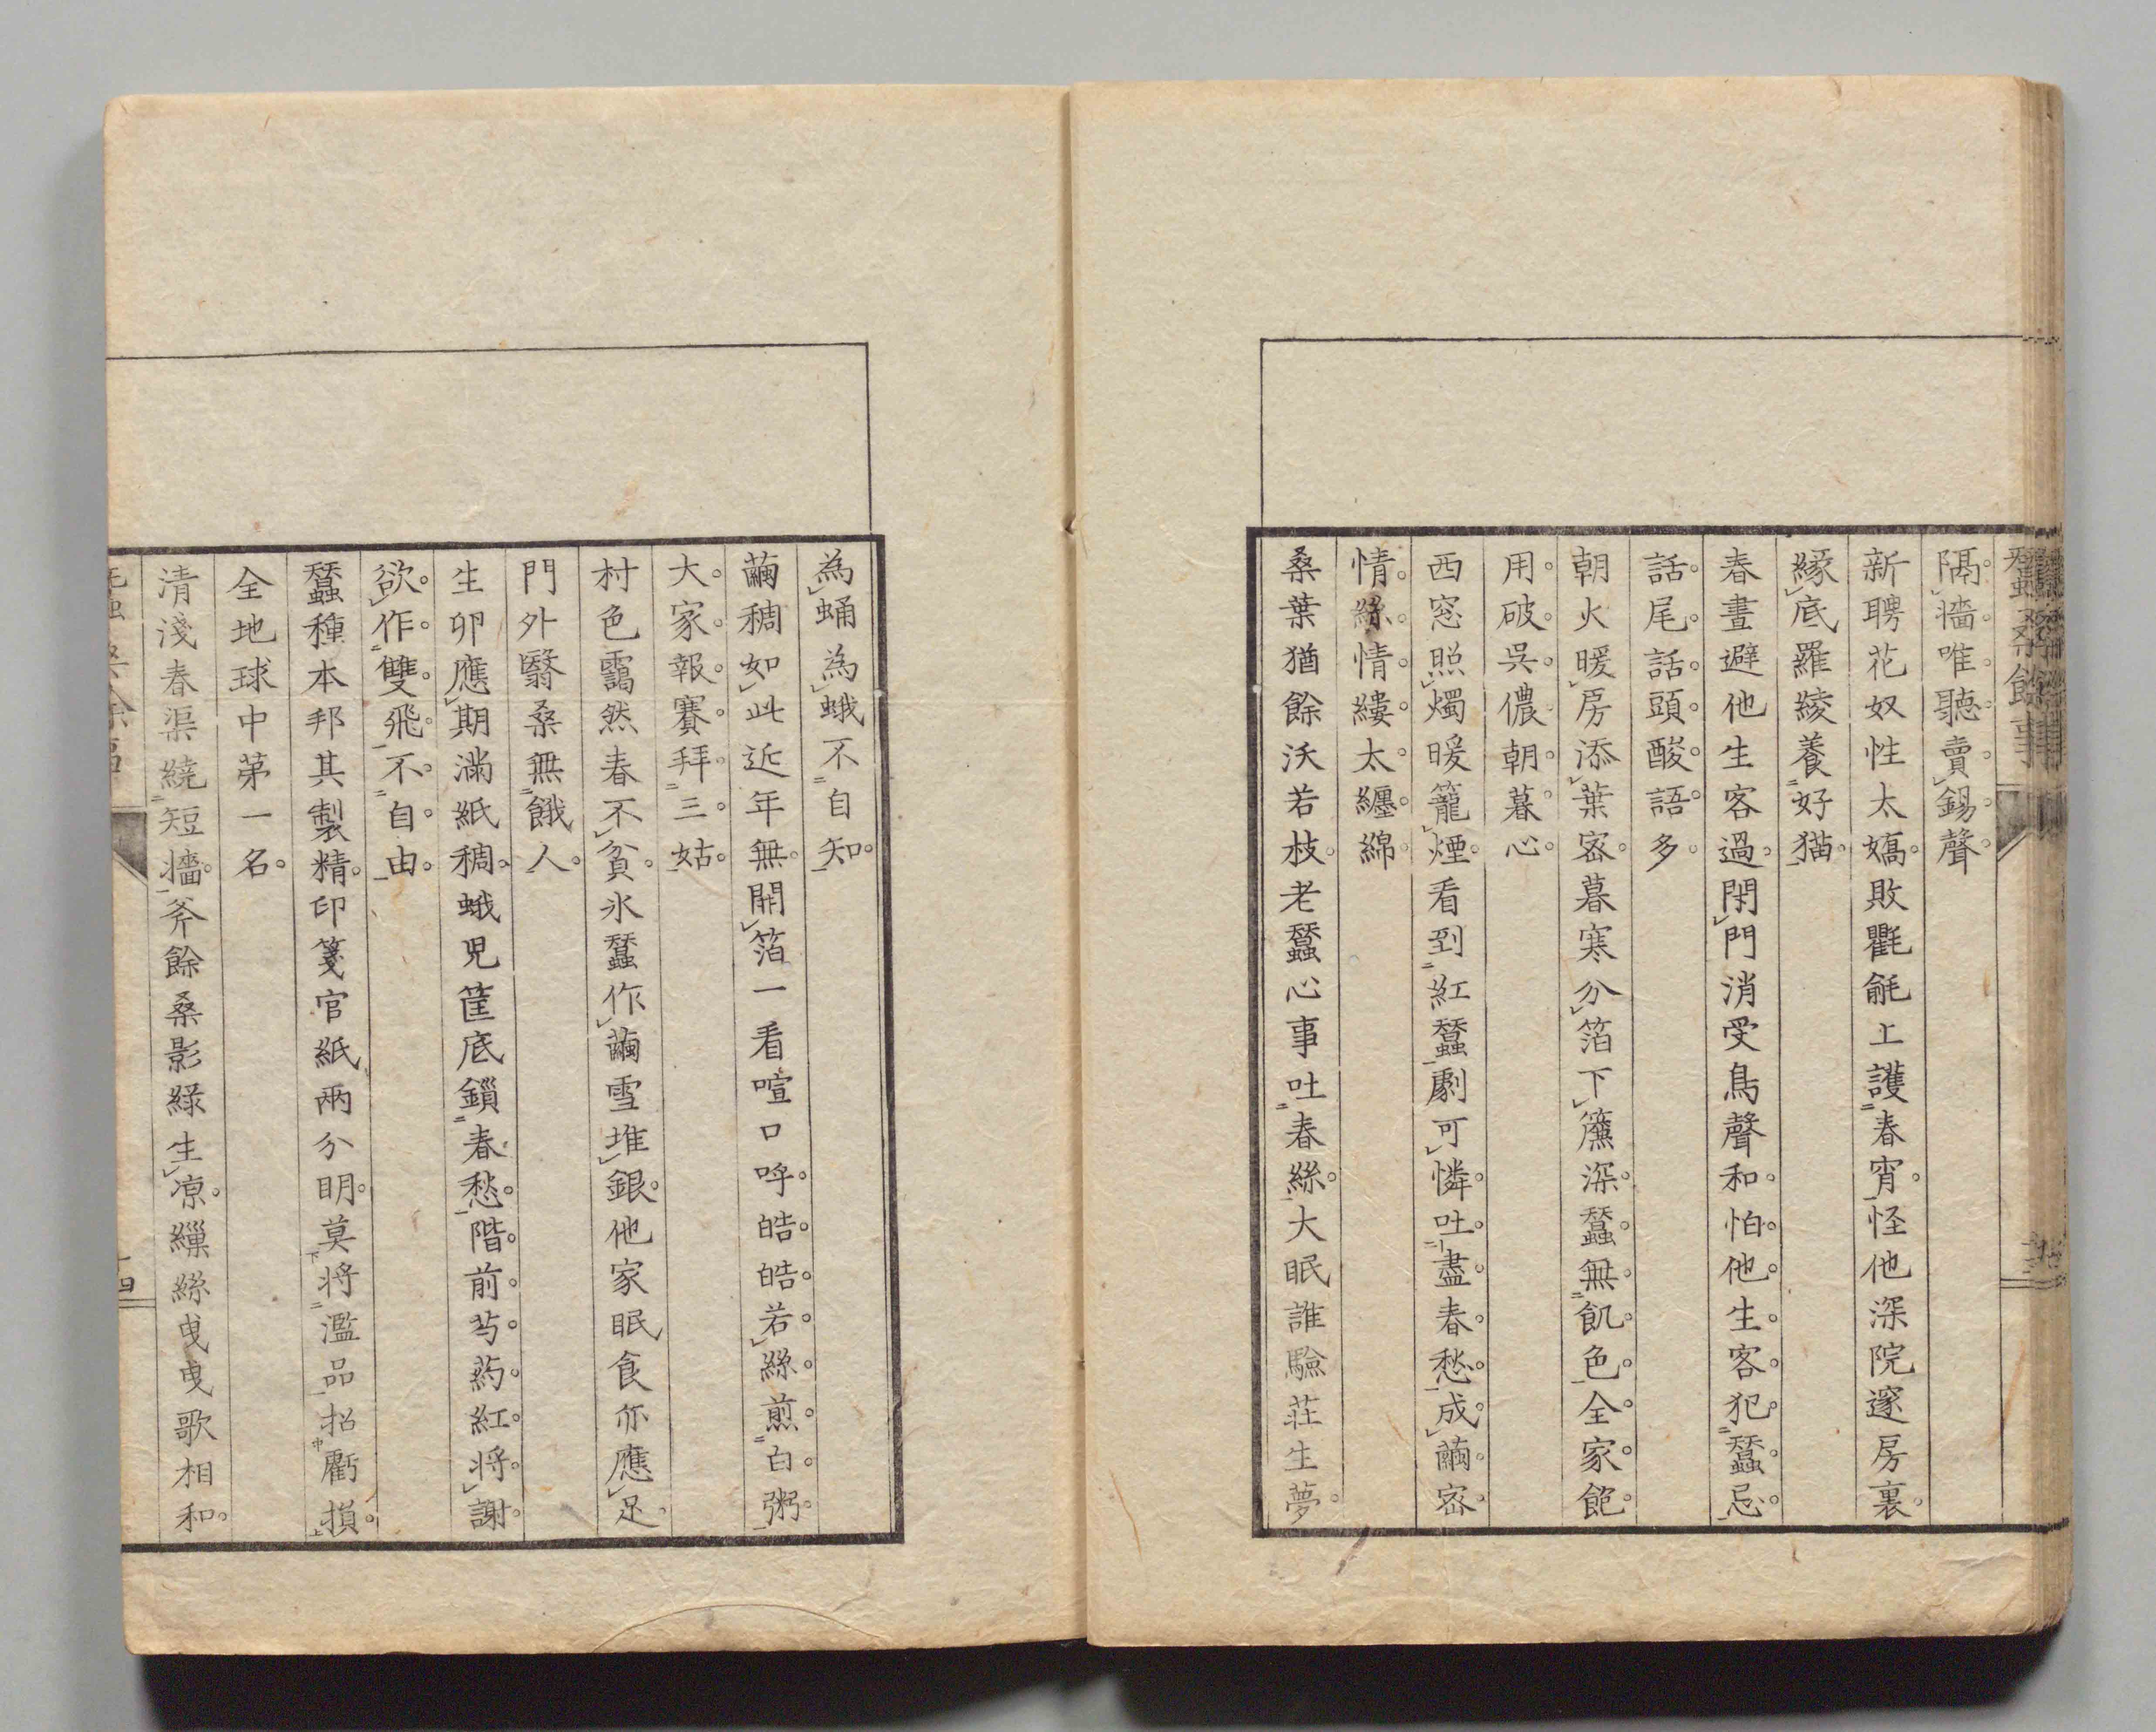 隔牆唯聽賣錫聲
新聘花奴性太嬌敗氍毹上護春宵怪他深院邃房裏
緣底羅綾養好猫
春晝避他生客過閑門消受鳥聲和怕他生客犯蠶忌
話尾話頭酸語多
朝火暖房添葉密暮寒分箔下簾深蠶無飢色全家飽
用破吳儂朝暮心
西窓照燭暖籠煙看到紅蠶劇可憐吐盡春愁成繭密
情絲情縷太纏綿
桑葉猶餘沃若枝老蠶心事吐春絲大眠誰驗荘生夢
為蛹為蛾不自知
繭稠如此近年無開箔一看喧口呼皓皓若絲煎白粥
大家報賽拜三姑
村色靄然春不貧氷蠶作繭雪堆銀他家眠食亦應足
門外翳桑無餓人
生卵應期滿紙稠蛾児筐底鎖春愁階前芍葯紅将謝
欲作雙飛不自由
蠶種本邦其製精印箋官紙兩分明莫将濫品招虧損
全地球中苐一名
清淺春渠繞短牆斧餘桑影綠生凉繅絲曳曳歌相和
十四